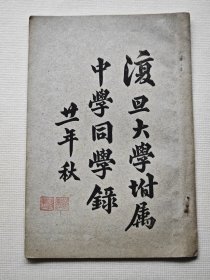 復旦大學附属
中學同學錄
廿一年秋